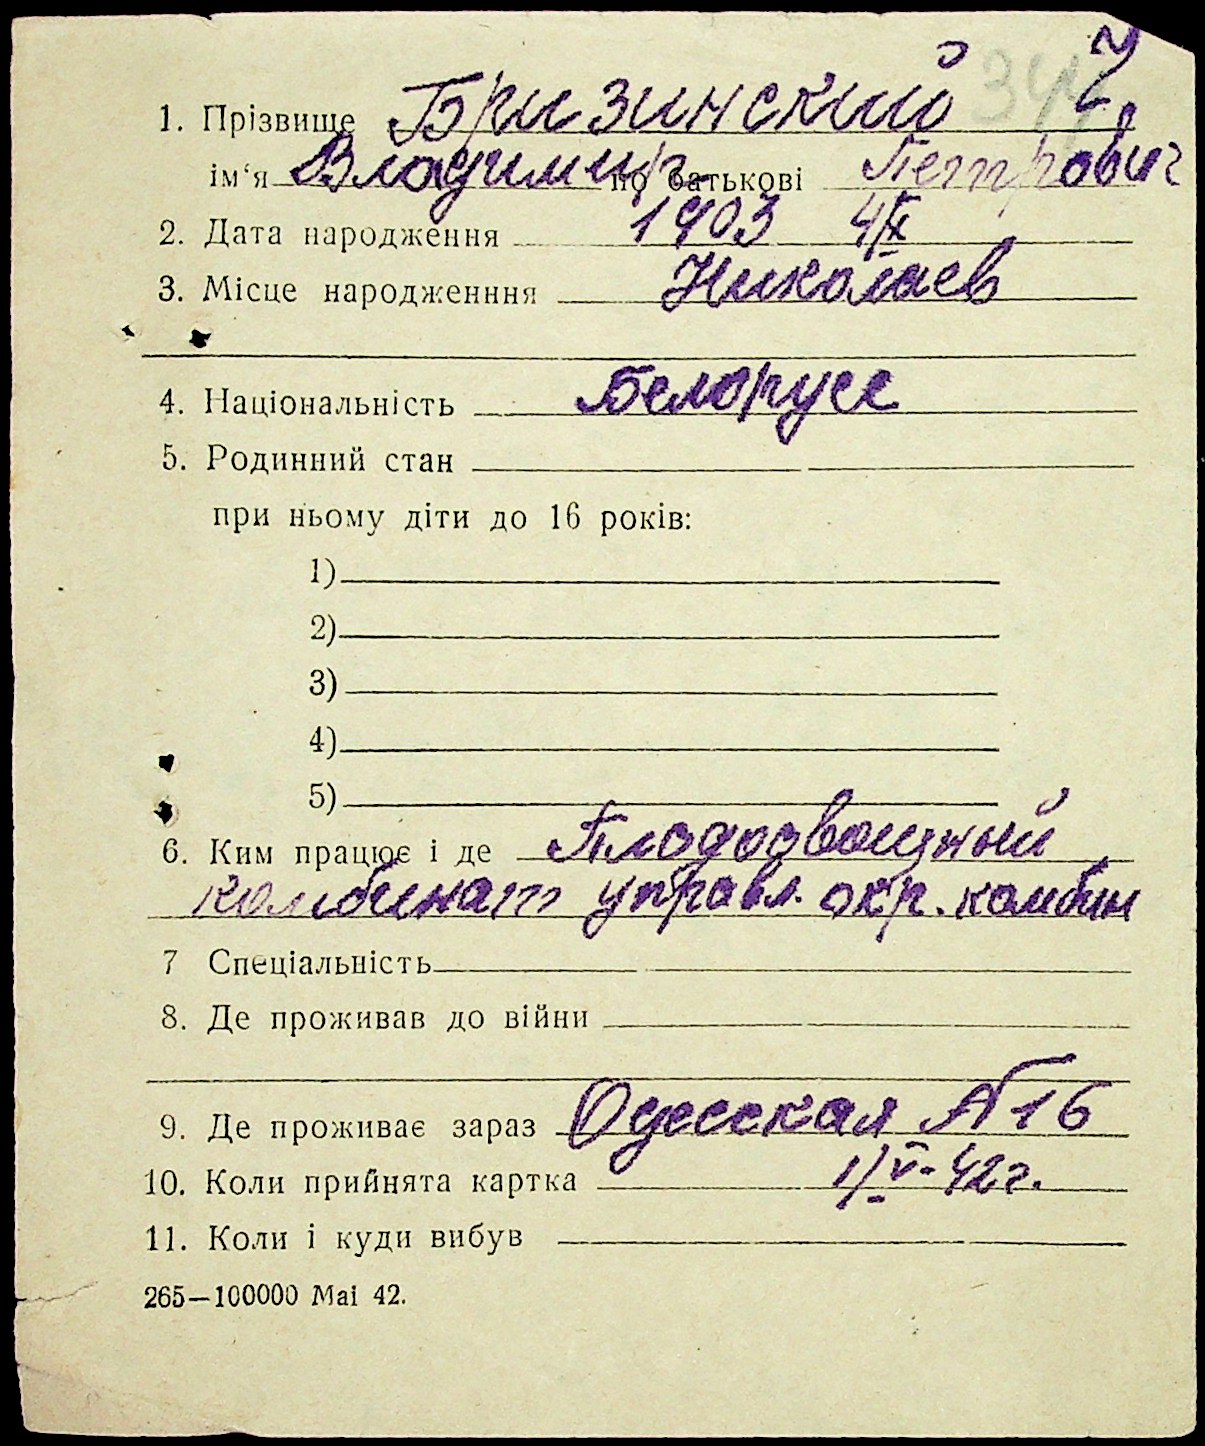 1. Прізвище Бризинский
ім‘я Владимир по батькові Петрович
2. Дата народження 1903 4/IX
3. Місце народженння Николаев
4. Національність Белорусс
5. Родинний стан
при ньому діти до 16 років:
1)
2)
3)
4)
5)
6. Ким працює і де Плодоовощный
комбинат управл. окр. комбин
7 Спеціальність
8. Де проживав до війни
9. Де проживає зараз Одесская № 16
10. Коли прийнята картка 1/V-42г.
11. Коли і куди вибув
265—100000 Маі 42.